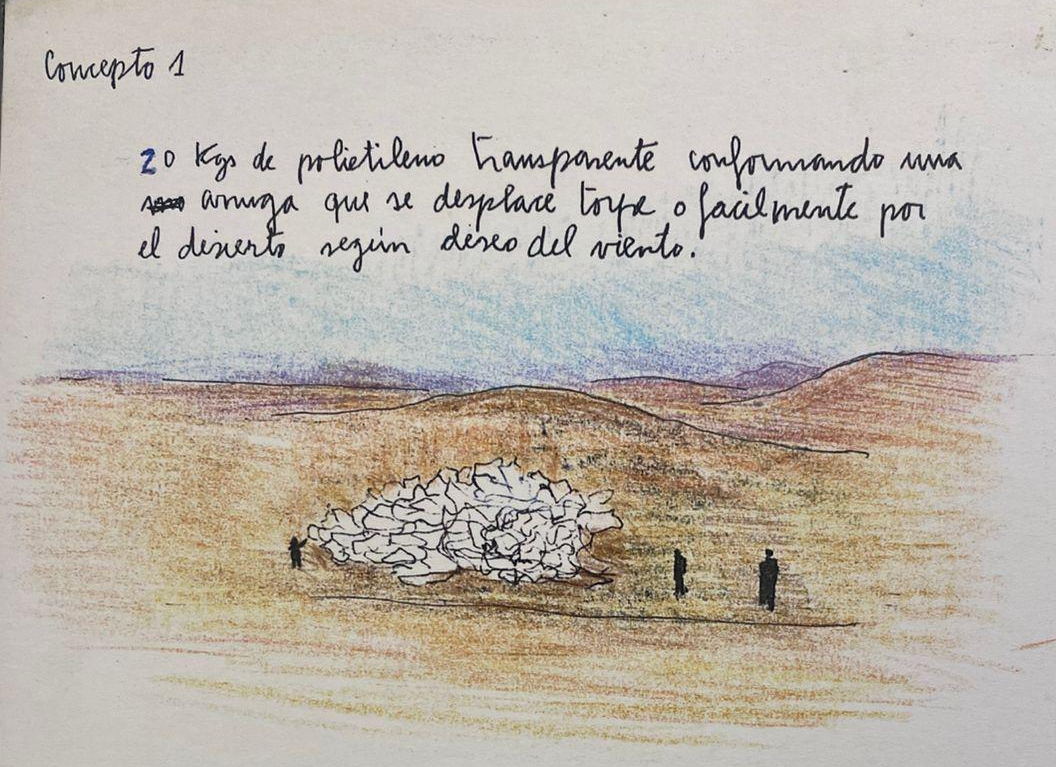 Concepto 1
20 Kgs de polietileno transparente conformando una
arruga que se desplace torpe o facilmente por
el desierto según deseo del viento.